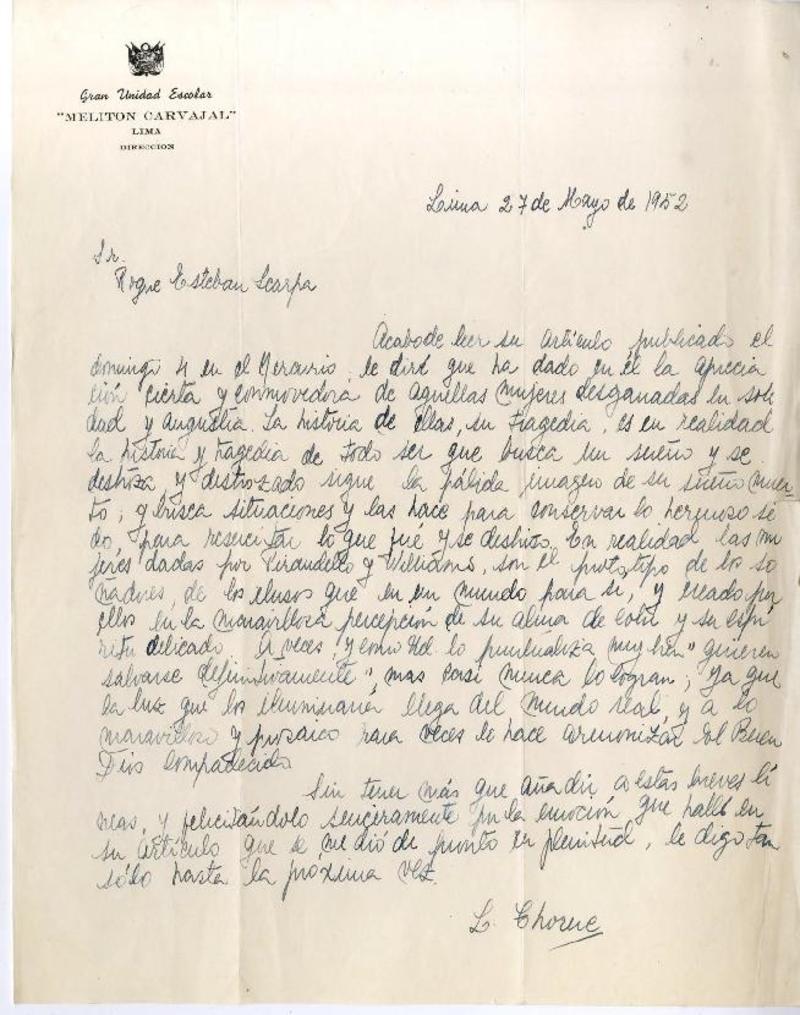 Gran Unidad Escolar
"MELITON CARVAJAL"
LIMA
DIRECCION
Lima 27 de Mayo de 1952
Sr.
Roque Esteban Scarpa
Acabo de leer su artículo publicado el
domingo 4 en el Mercurio, le diré que ha dado en él la aprecia
ción cierta y conmovedora de aquellas mujeres desganadas en sole
dad y angustia. La historia de ellas, su tragedia, es en realidad
la historia y tragedia de todo ser que busca un sueño y se
destroza, y destrozado sigue la pálida imagen de su sueño muer-
to; y busca situaciones y las hace para conservar lo hermoso si
do, para resucitar lo que fué y se deshizo. En realidad las mu
jeres dadas por Pirandello y Williams, son el prototipo de los so
ñadores, de los ilusos que en un mundo para sí, y creado por
ellos en la maravillosa percepción de su alma de y su espí
ritu delicado. A veces, y como Ud. lo puntualiza muy bien "quieren
salvarse definitivamente", mas casi nunca lo logran; ya que
la luz que los iluminaría llega del mundo real, y a lo
maravilloso y prosaico para veces lo hace armonizar el Buen
Dios compadecido
Sin tener más que añadir a estas breves lí
neas, y felicitándolo sinceramente por la emoción que hallé en
su artículo que se me dió de pronto en plenitud, le digo tan
sólo hasta la próxima vez.
L. Chorne